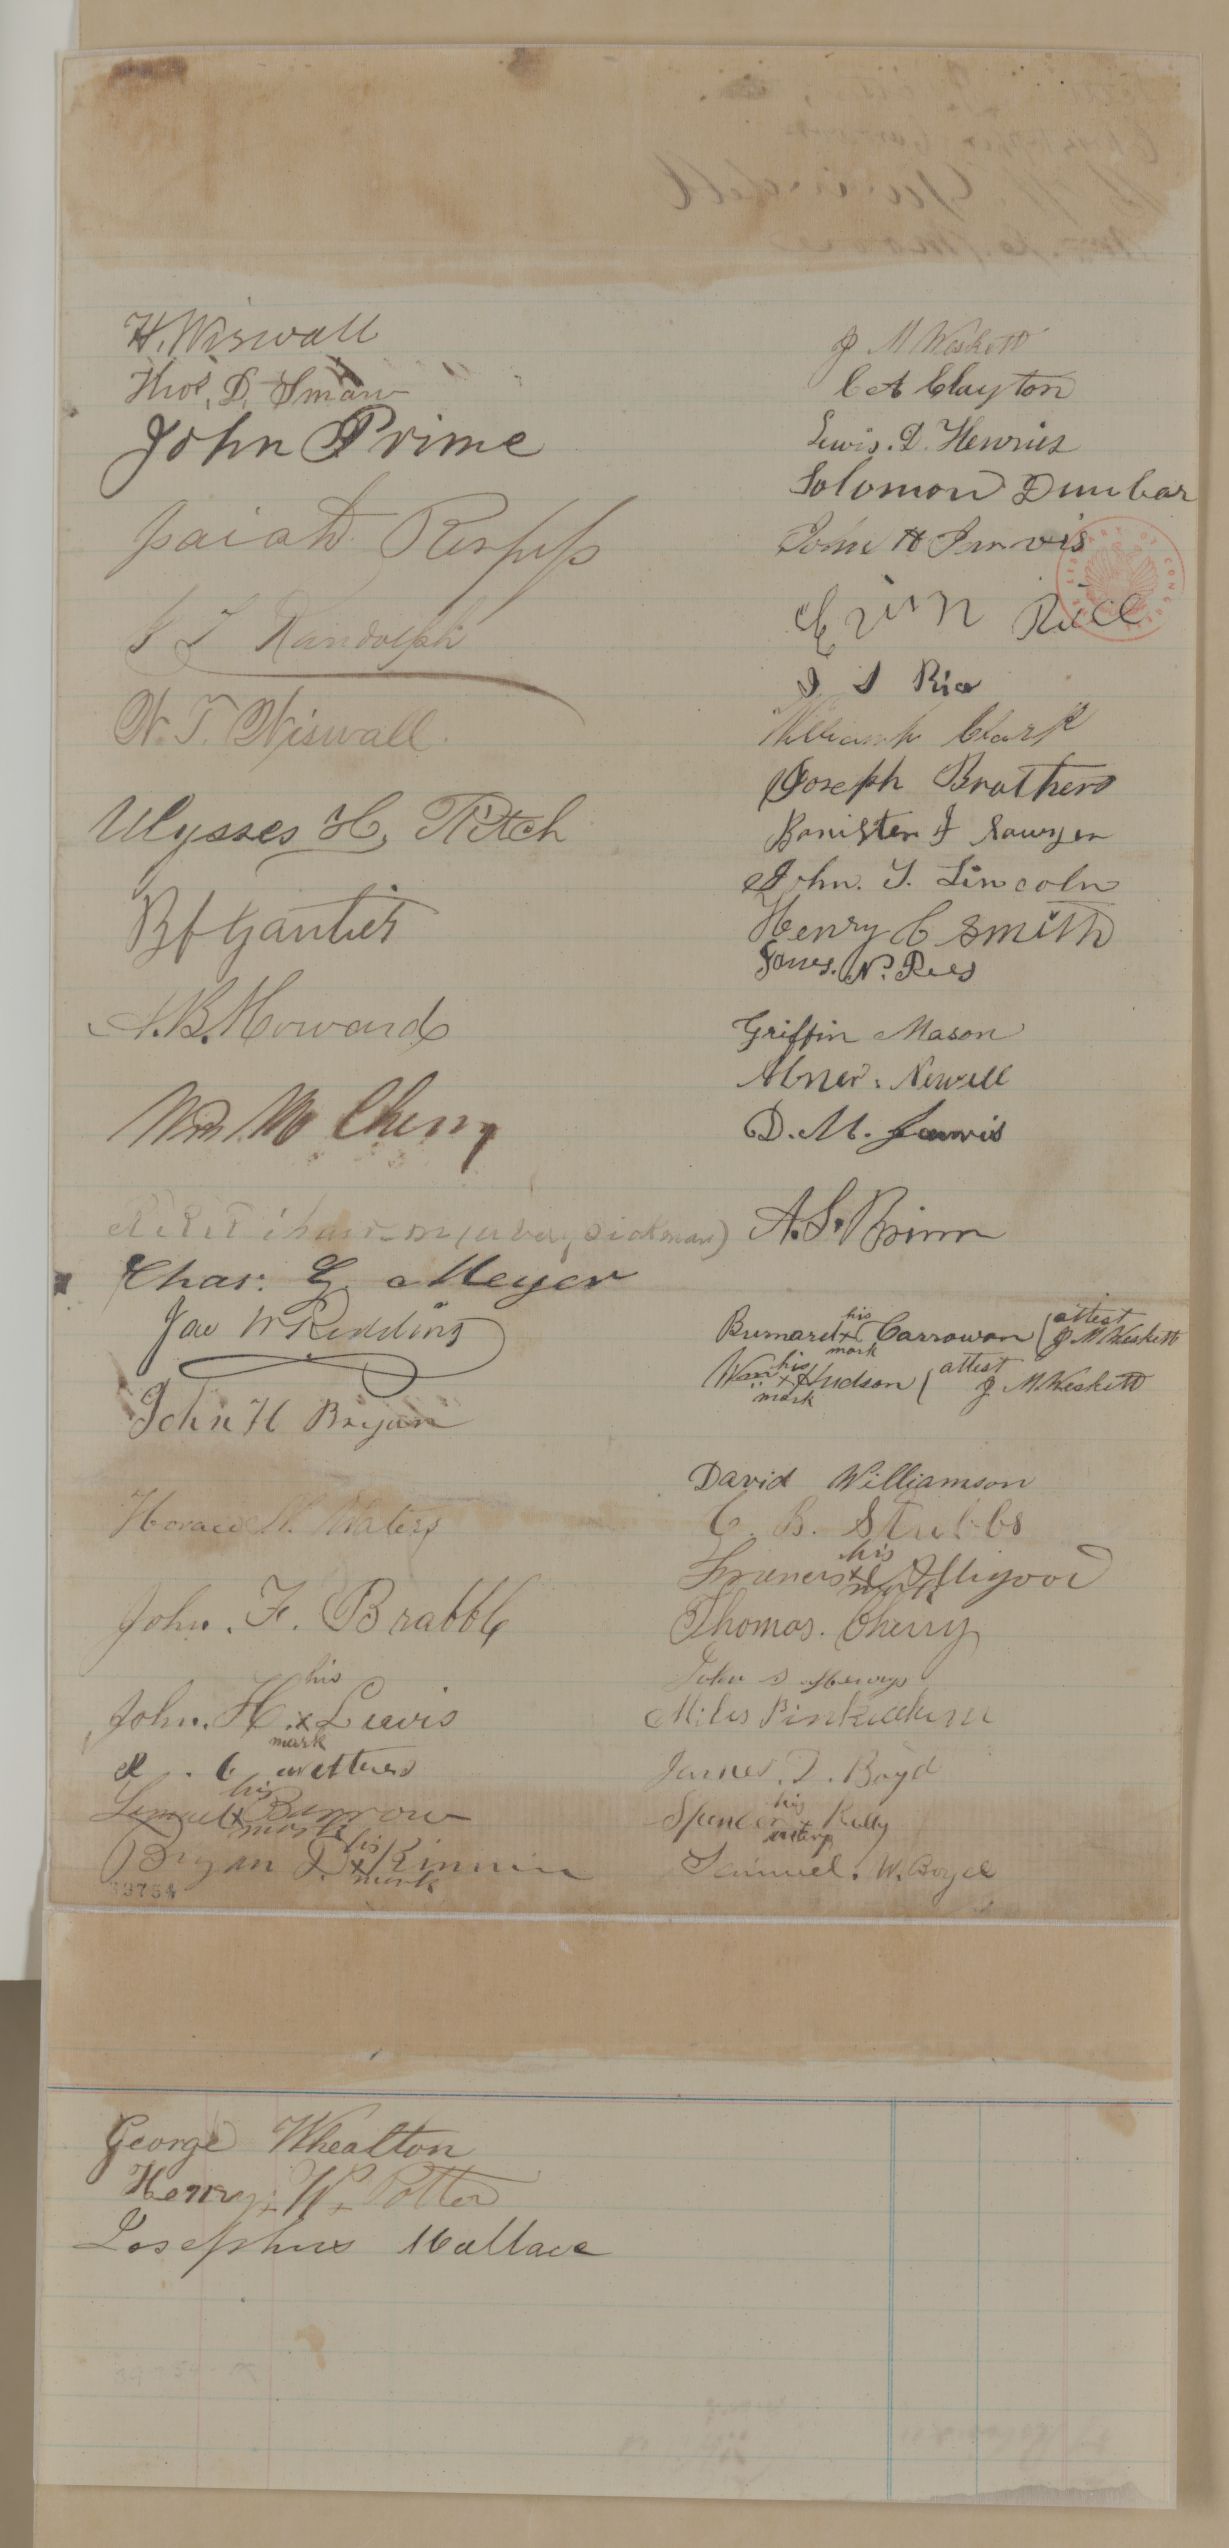 H. Wiswall
Thos. D. Smaw
John Prime
Isaiah Respess
Randolph
W. T. Wiswall
Ulysses H. Ritch
B f Gautier
A.B. Howard
Wm M Cherry
Chas: G. Meyer
Jas W Redding
John H Bryan
Horace W. Waters
John. F. Brabble
his
John. H. x Lewis
mark
his
Lemuel x Barrow
mark
his
Bryan D. x Pinnin
mark
13754
J M Weskett
C A Clayton
Lewis. D. Henries
Solomon Dunbar
John H Jarvis
Ervin Rice
J S Rice
William Clark
Joseph Brothers
Banister J Sawyer
John. T. Lincoln
Henry C Smith
James. N. Rees
Griffin Mason
Abner. Newell
D. M. Jarvis
A. S. Brinn
his attest
x Carrowan ( J M Weskett
mark
his attest
Wm x Hudson ( J M Weskett
mark
David Williamson
C. B. Stubbs
his
x Alligood
mark
Thomas. Cherry
John S
Miles
James. T. Boyd
his
Spencer x Kelly
mark
Samuel. W. Boyd
LIBRARY OF CONGRESS
George Whealton
Henry. W. Potter
Josephus Wallace